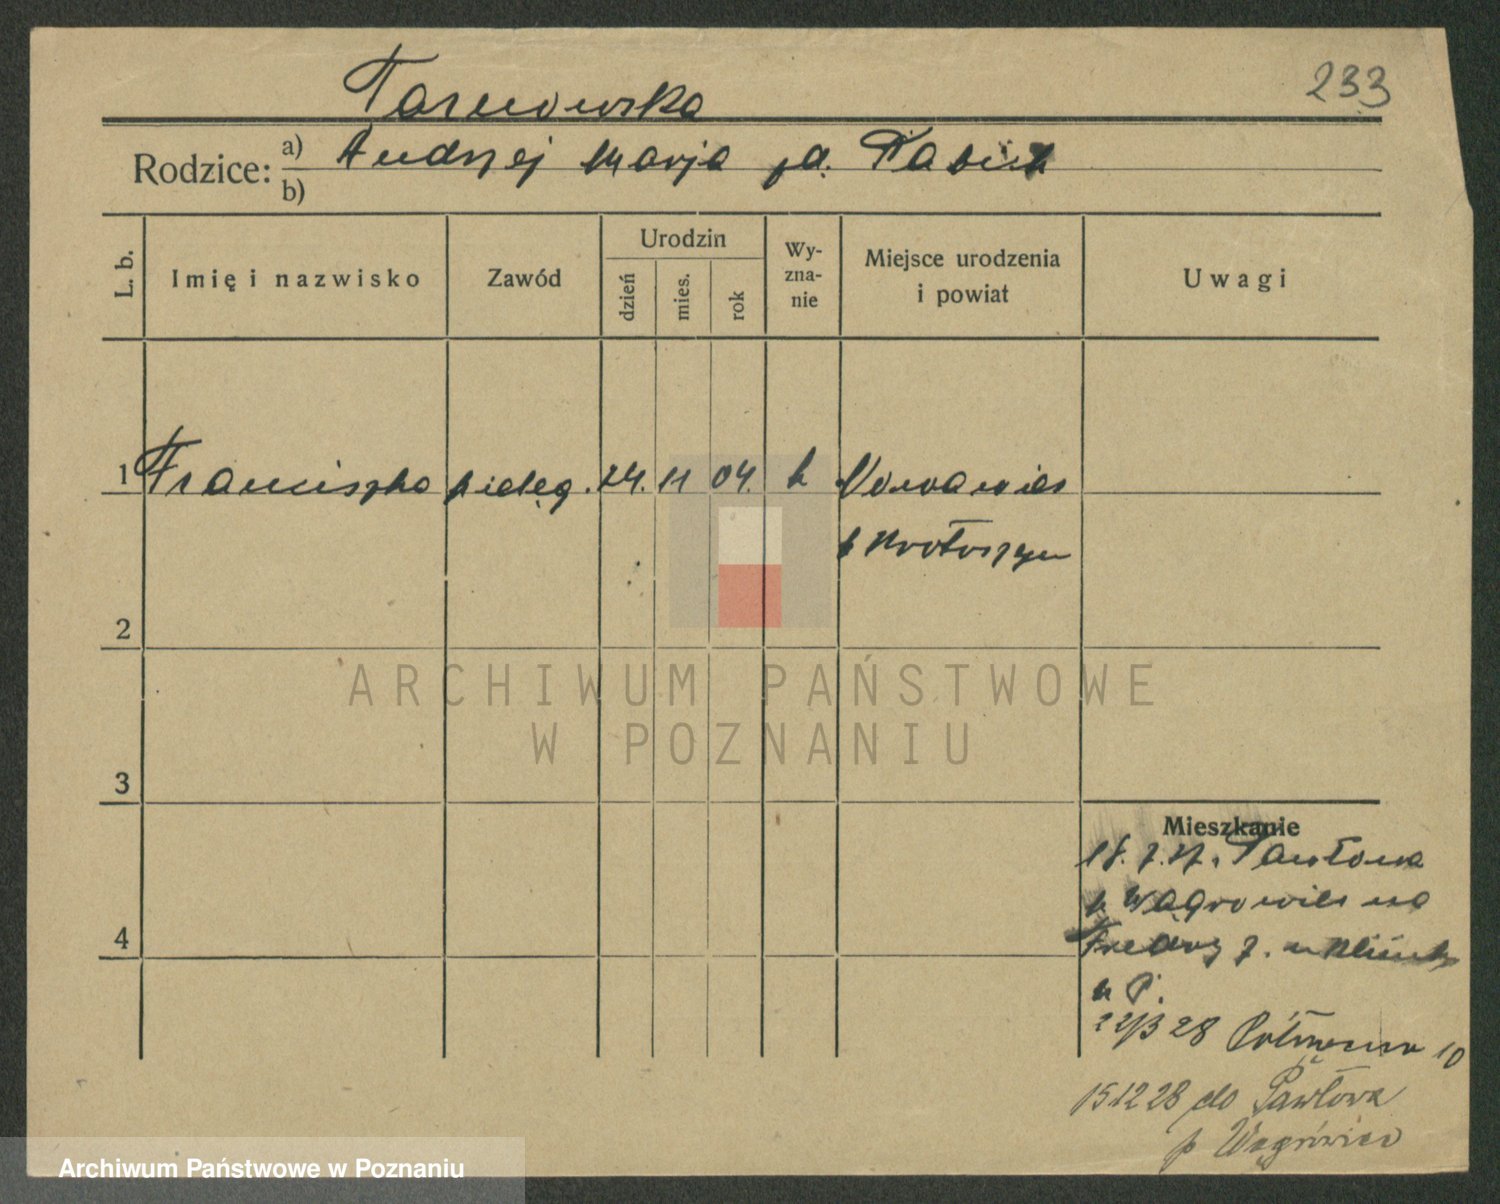 233
Tarnowska
Rodzice: a) Andrzej Marja zd.
b)
L. b.
Imię i nazwisko
Zawód
Urodzin
dzień
mies.
rok
Wy-
zna-
nie
Miejsce urodzenia
i powiat
Uwagi
1 Franciszka pielęg. 24. 11 04. k
p Krotoszyn
2
3
4
Mieszkanie
18. 7. 27. Pawłowa
p Wągrowiec na
Fredry 7.
u P.
22/3 28 Półwiejska 10
15 12 28 do Pawłowa
p Wągrowiec
ARCHIWUM PAŃSTWOWE
W POZNANIU
Archiwum Państwowe w Poznaniu